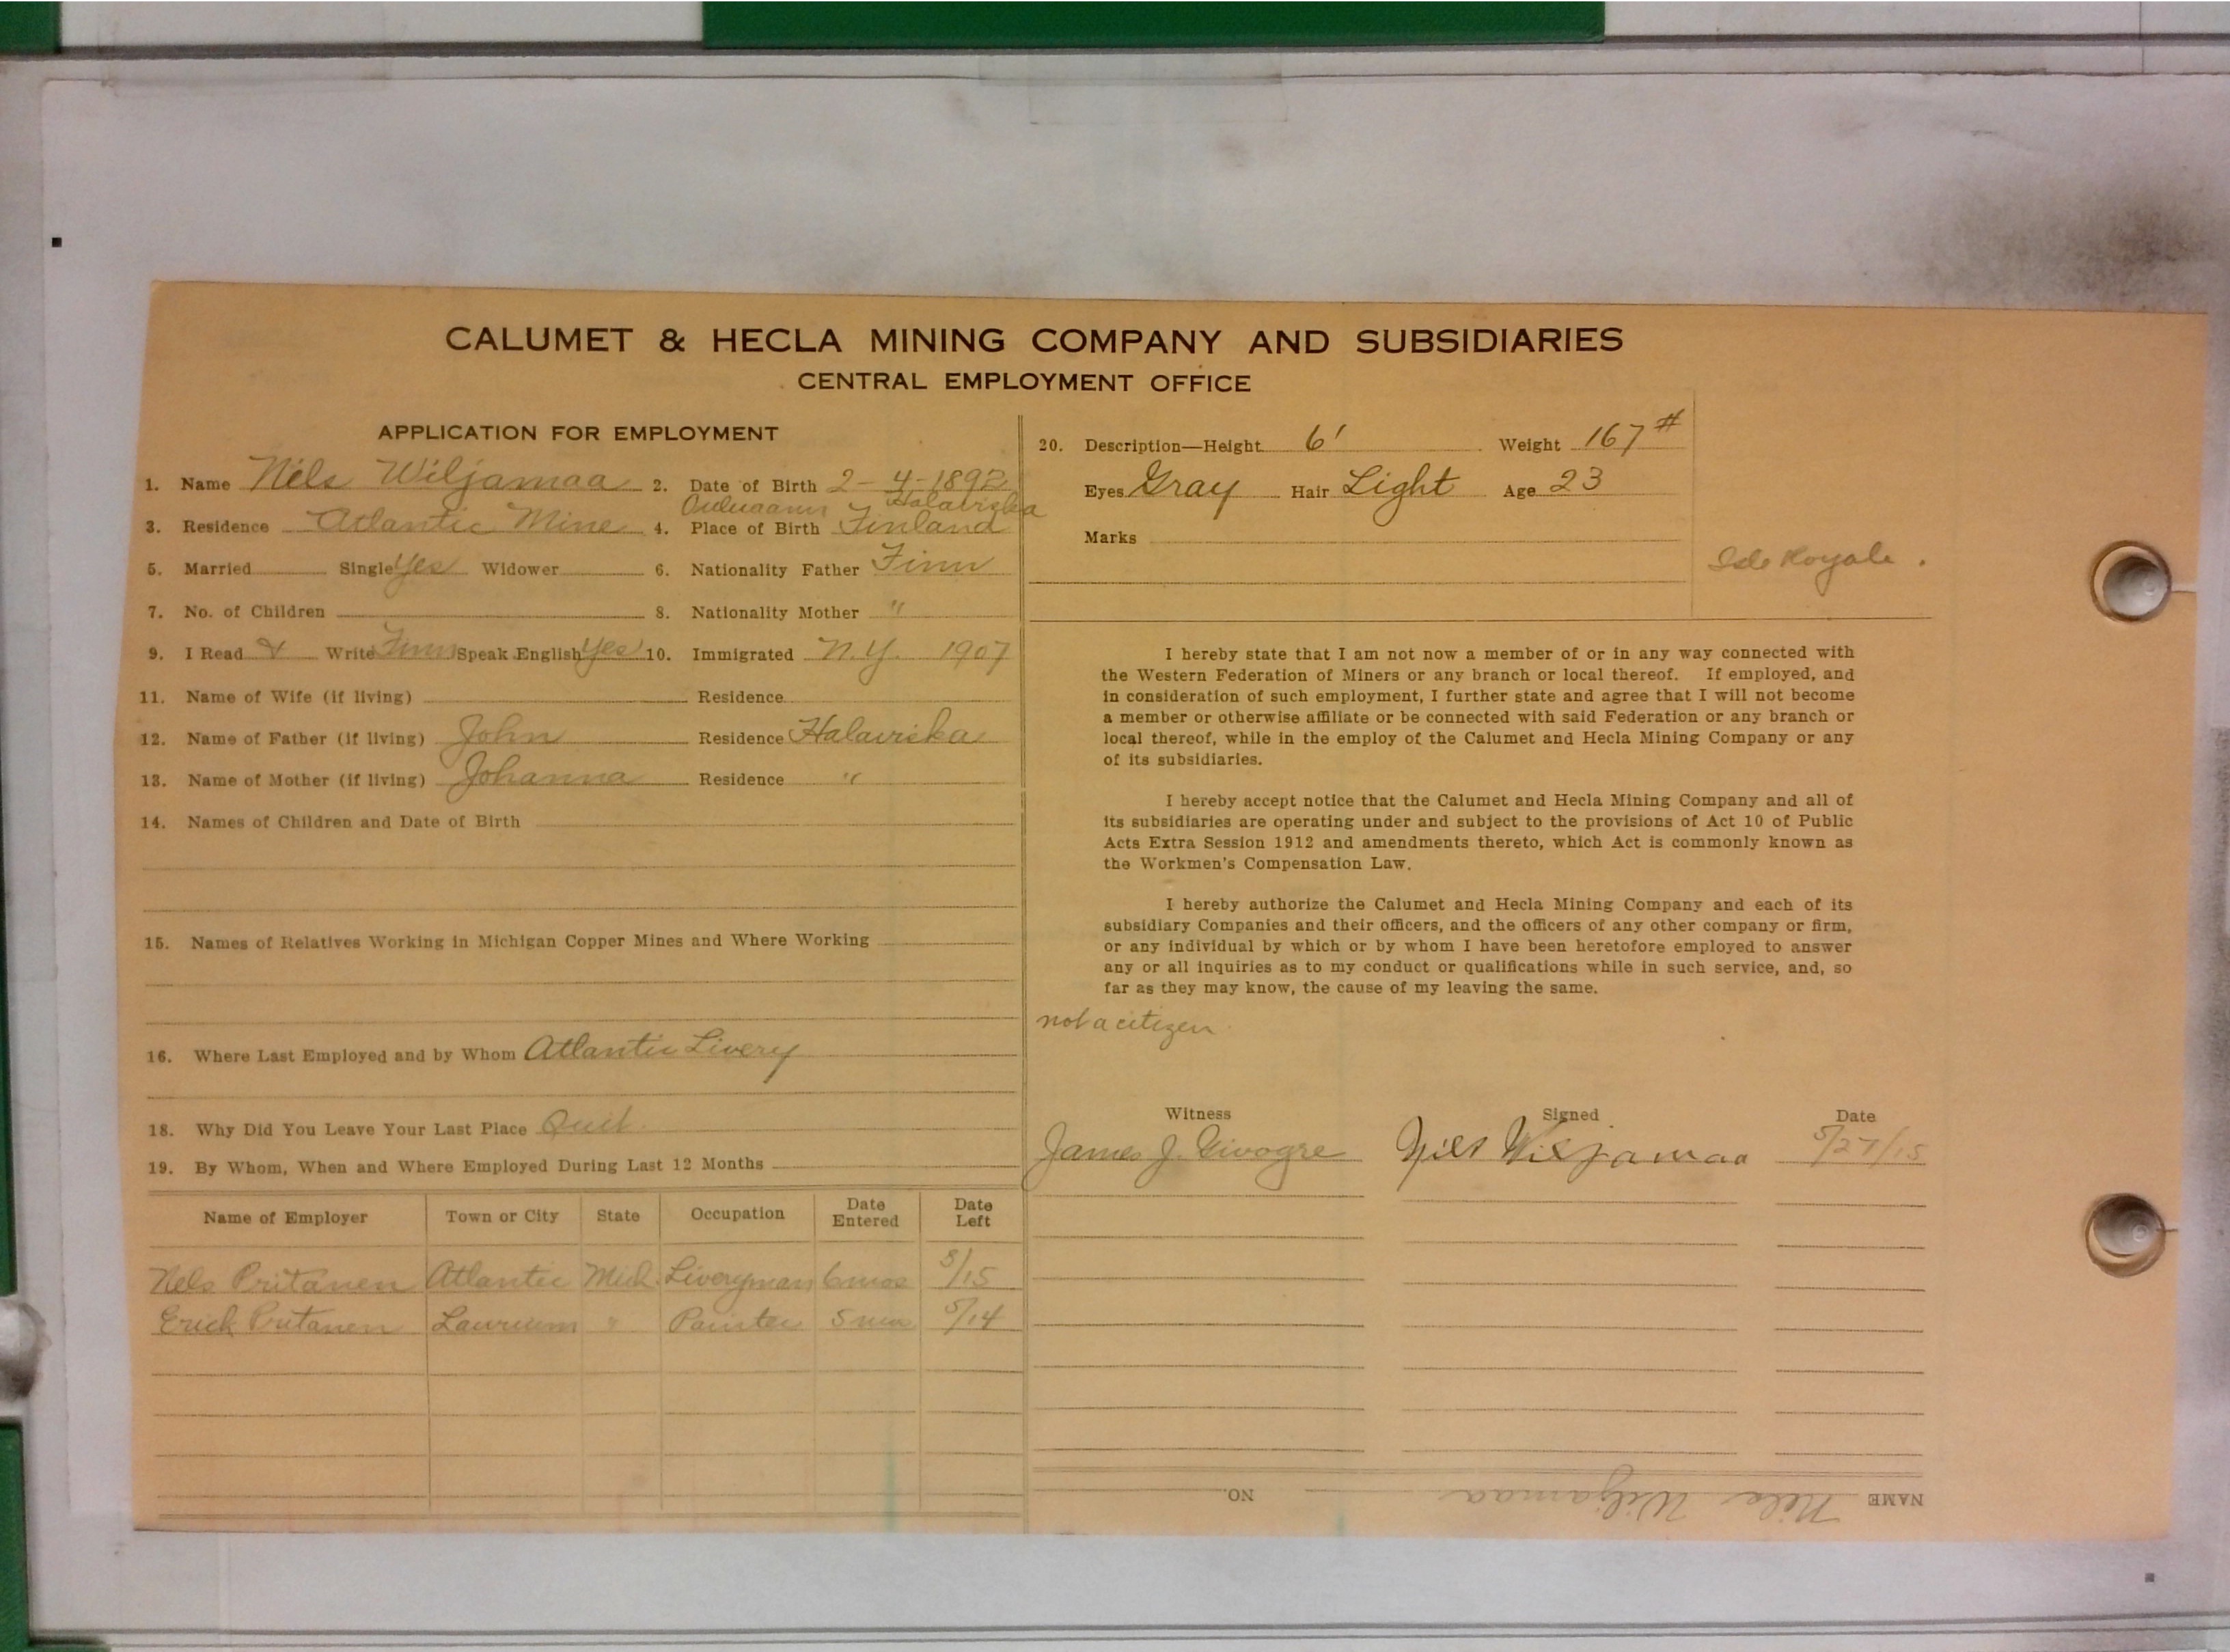 CALUMET & HECLA MINING COMPANY AND SUBSIDIARIES
CENTRAL EMPLOYMENT OFFICE
APPLICATION FOR EMPLOYMENT
1. Name Nels Wiljamaa 2. Date of Birth 2-4-1892
Halaviska
3. Residence Atlantic Mine 4. Place of Birth Finland
5. Married Single Yes Widower 6. Nationality Father Finn
7. No. of Children 8. Nationality Mother "
9. I Read & Write Finn Speak English Yes 10. Immigrated N.Y. 1907
11. Name of Wife (if living) Residence
12. Name of Father (if living) John Residence Halaviska
13. Name of Mother (if living) Johanna Residence "
14. Names of Children and Date of Birth
15. Names of Relatives Working in Michigan Copper Mines and Where Working
16. Where Last Employed and by Whom Atlantic Livery
18. Why Did You Leave Your Last Place Quit
19. By Whom, When and Where Employed During Last 12 Months
Name of Employer Town or City State Occupation Date Entered Date Left
Nels Pritanen Atlantic Mich. Liveryman 6 mos 3/15
Erick Pritanen Laurium " Painter 5 mos 5/14
20. Description—Height 6' Weight 167#
Eyes Gray Hair Light Age 23
Marks
Isle Royale.
I hereby state that I am not now a member of or in any way connected with
the Western Federation of Miners or any branch or local thereof. If employed, and
in consideration of such employment, I further state and agree that I will not become
a member or otherwise affiliate or be connected with said Federation or any branch or
local thereof, while in the employ of the Calumet and Hecla Mining Company or any
of its subsidiaries.
I hereby accept notice that the Calumet and Hecla Mining Company and all of
its subsidiaries are operating under and subject to the provisions of Act 10 of Public
Acts Extra Session 1912 and amendments thereto, which Act is commonly known as
the Workmen's Compensation Law.
I hereby authorize the Calumet and Hecla Mining Company and each of its
subsidiary Companies and their officers, and the officers of any other company or firm,
or any individual by which or by whom I have been heretofore employed to answer
any or all inquiries as to my conduct or qualifications while in such service, and, so
far as they may know, the cause of my leaving the same.
not a citizen
Witness Signed Date
James J. Nils Wiljamaa 5/27/15
NAME Nels Wiljamaa NO.